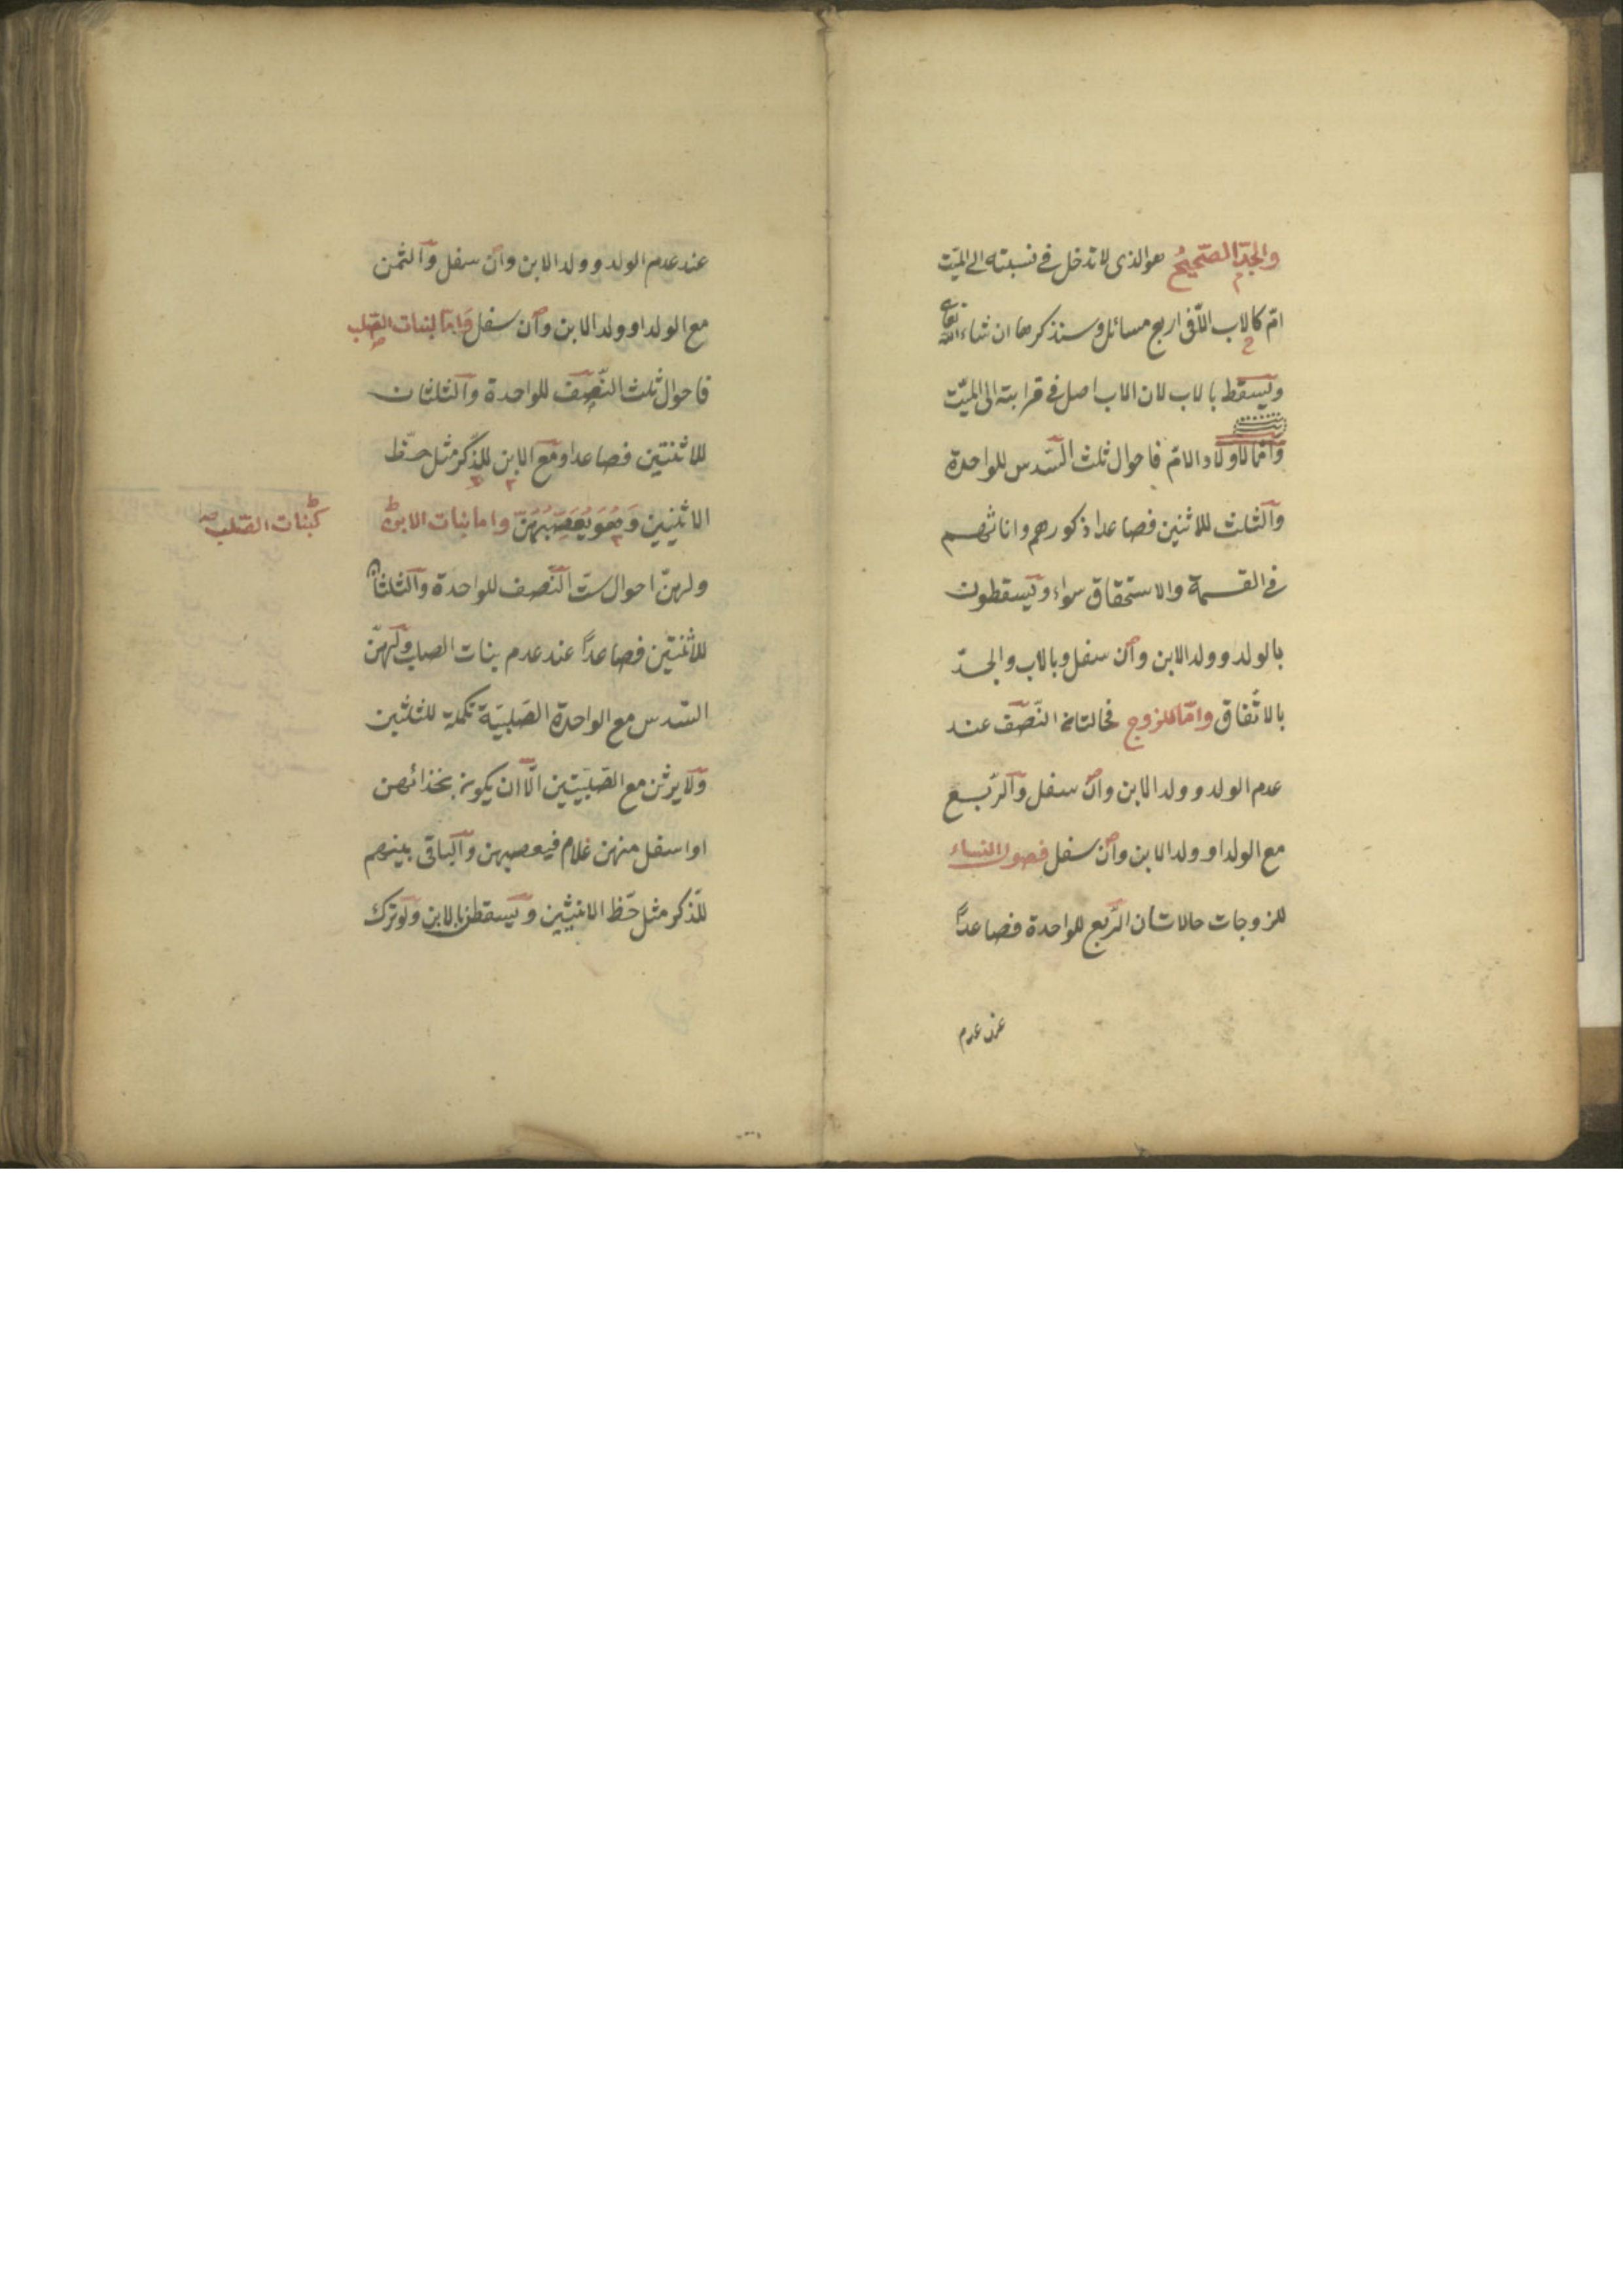 والجدّ الصّحيح هو الذى لا تدخل فى نسبته الى الميّت
امّ كالاب الّا فى اربع مسائل وسنذكرها ان شاء الله تعالى
ويسقط بالاب لان الاب اصل فى قرابته الى الميّت
وامّا لاولاد الامّ فاحوال ثلث السّدس للواحدة
والثلث للاثنين فصاعدا ذكورهم واناثهم
فى القسمة والاستحقاق سواء ويسقطون
بالولد وولد الابن وان سفل وبالاب والجدّ
بالاتّفاق وامّا للزوج فحالتان النّصف عند
عدم الولد وولد الابن وان سفل والرّبع
مع الولد او ولد الابن وان سفل فصول النساء
للزوجات حالاتان الرّبع للواحدة فصاعداً
عند عدم
عند عدم الولد وولد الابن وان سفل والثمن
مع الولد او ولد الابن وان سفل وامّا لبنات الصّلب
فاحوال ثلث النّصف للواحدة والثلثان
للاثنتين فصاعدا ومع الابن للذّكر مثل حظّ
الانثيين وهو يعصّبهنّ وامابنات الابن
كبنات الصّلب
ولهنّ احوال ستّ النّصف للواحدة والثلثان
للاثنتين فصاعداً عند عدم بنات الصلب ولهنّ
السّدس مع الواحدة الصّلبيّة تكملة للثلثين
ولا يرثن مع الصّلبيّتين الّا ان يكون بحذائهن
او اسفل منهن غلام فيعصبهن والباقى بينهم
للذّكر مثل حظّ الانثيين ويسقطن بالابن ولو ترك